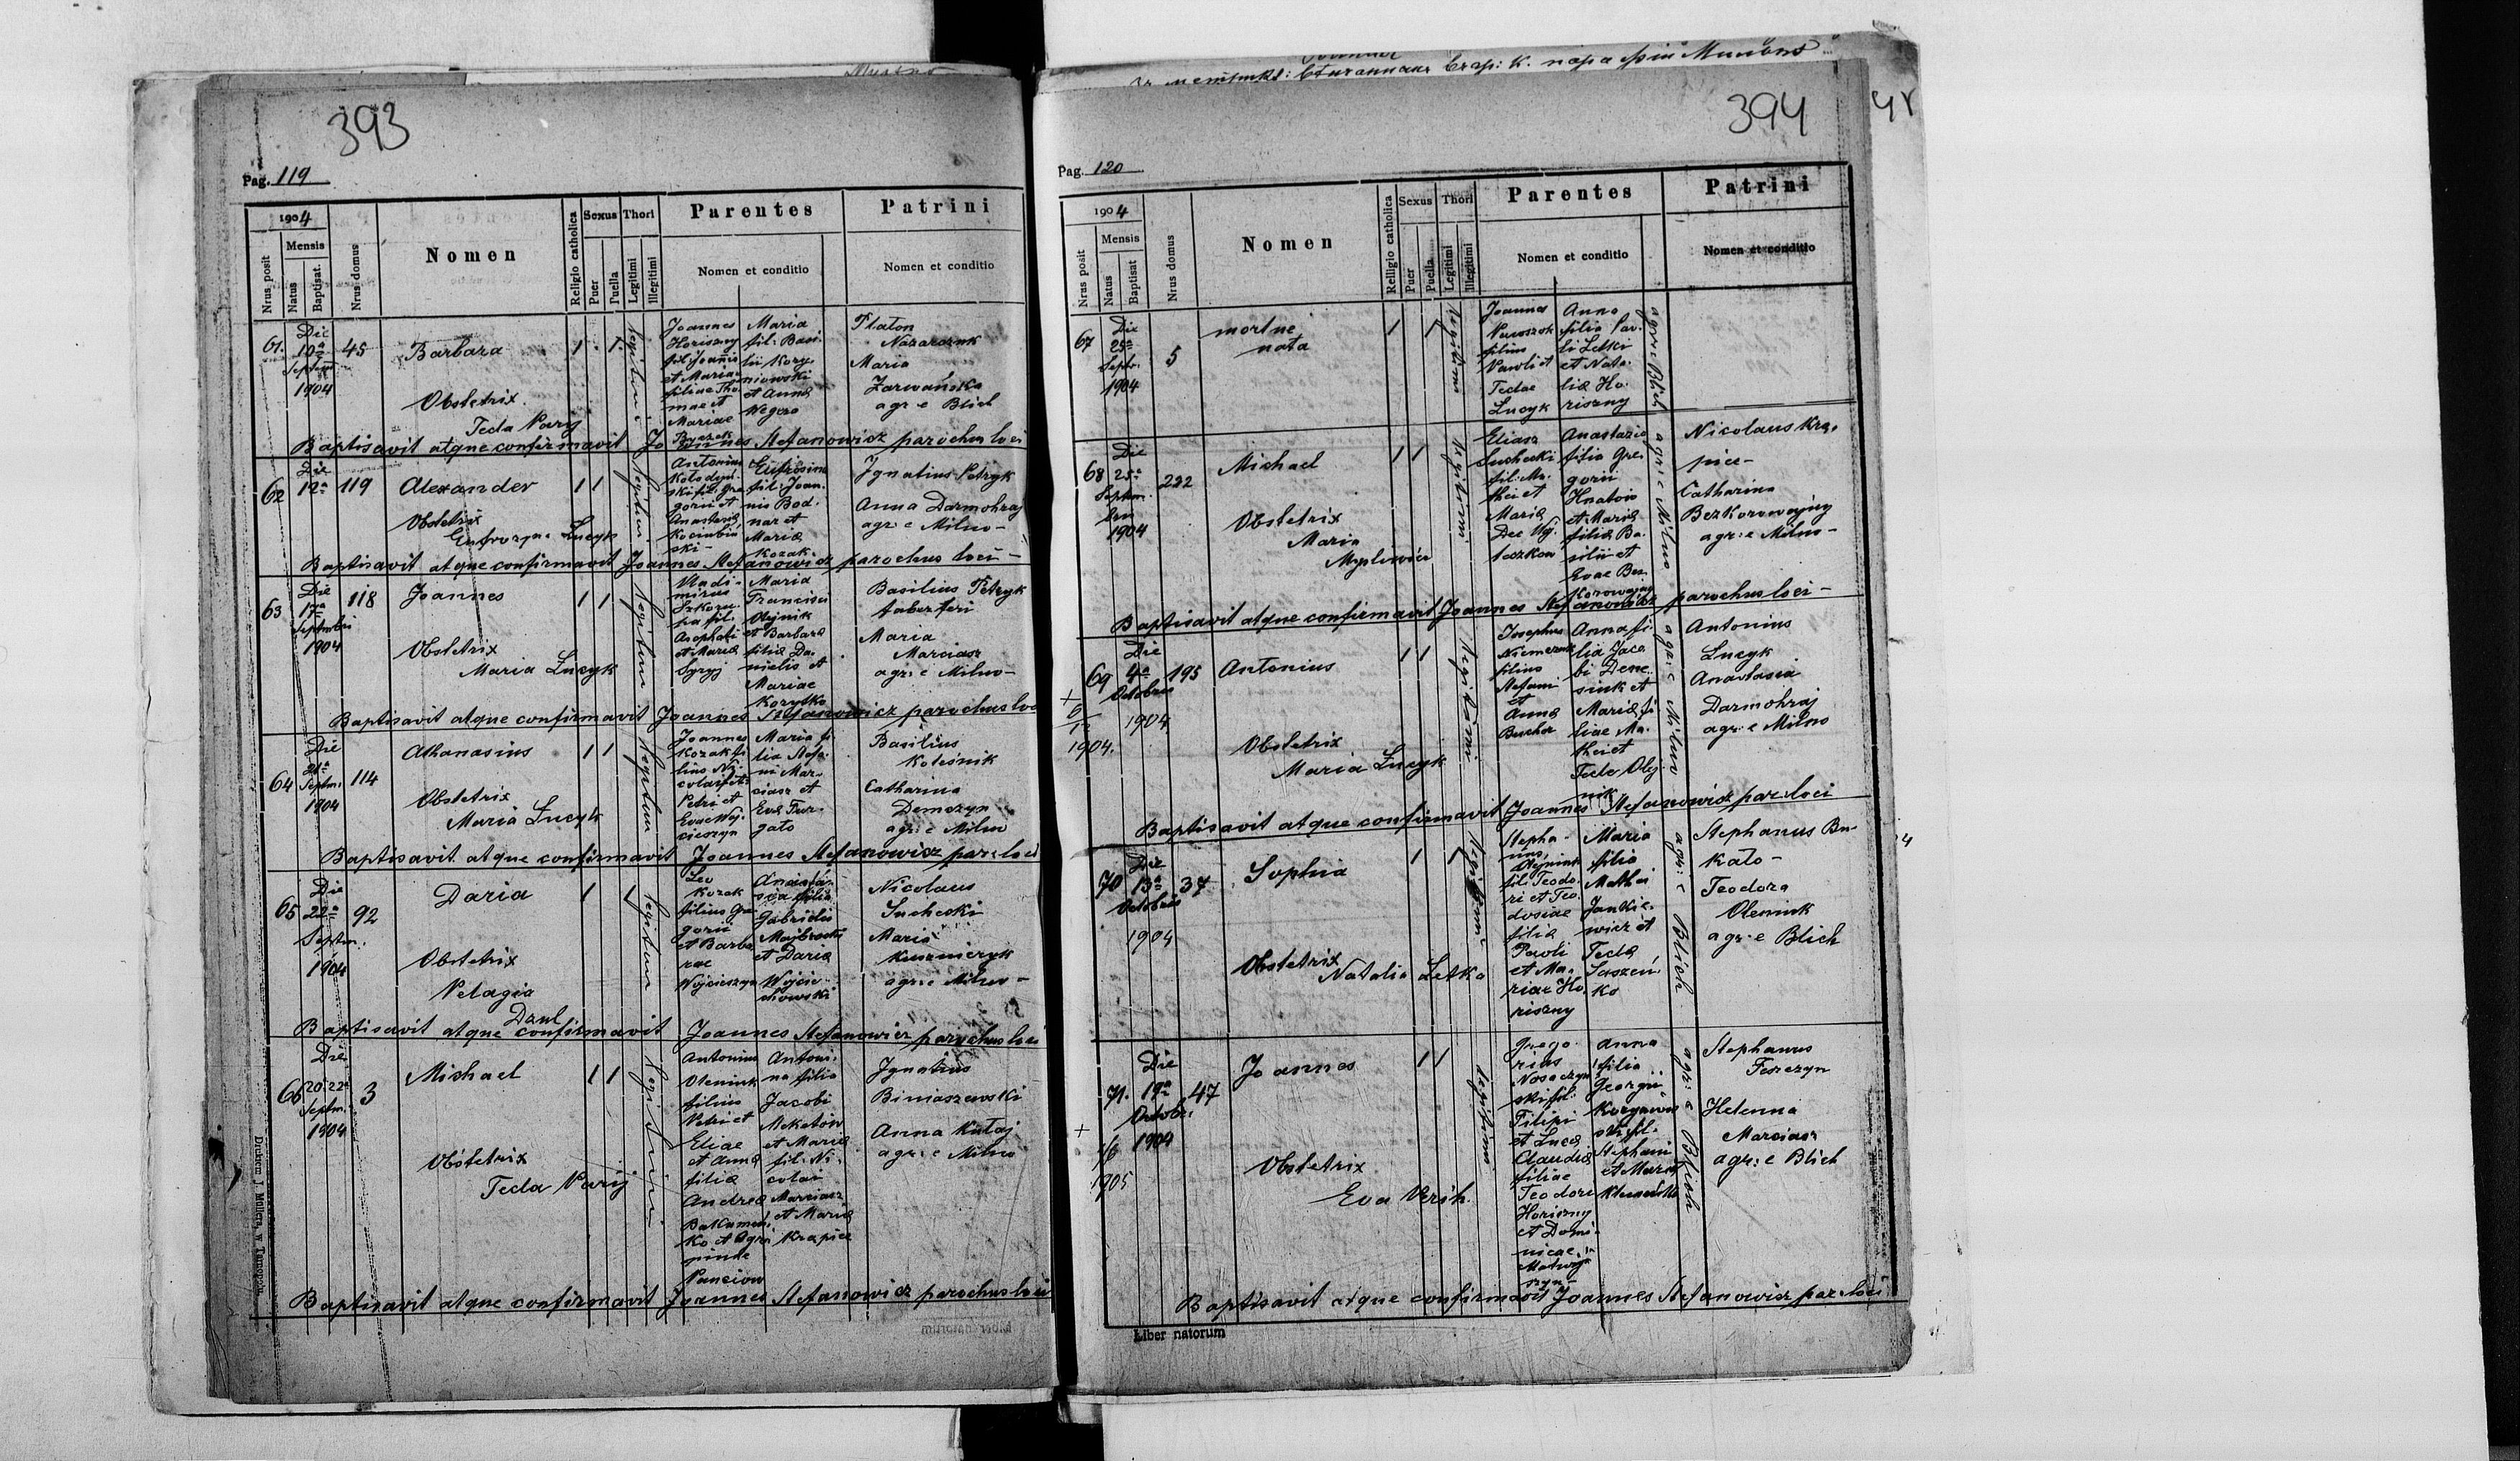 393
Pag. 119
1904
Mensis
Nrus posit
Natus
Baptisat.
Nrus domus
Nomen
Religio catholica
Sexus
Puer
Puella
Thori
Legitimi
Illegitimi
Parentes
Nomen et conditio
Patrini
Nomen et conditio
61.
Die
10a
Septem
1904
45
Barbara
Obstetrix
Tecla Parij
Joannes
Horiszny
fil: Joannis
et Mariae
filiae Tho
mae et
Mariae
Maria
fil: Basi
lii Kory
niowski
et Anna
Wegera
Platon
Nazarczuk
Maria
Zarwańska
agr: e Blich
Baptisavit atque confirmavit Joannes Stefanowicz parochus loci
62
Die
12a
119
Alexander
Obstetrix
Łucyk
Antonius
Kołodyń
ski fil. Gre
gorii et
Anastasia
Kocimbiń
ski
Eufrosina
fil: Joan
nis Bod
nar et
Maria
Kozak
Ignatius Petryk
Anna Darmohraj
agr e Milno
Baptisavit atque confirmavit Joannes Stefanowicz parochus loci
63
Die
17a
Septembri
1904
118
Joannes
Obstetrix
Maria Łucyk
Vladi-
mirus
pa fil.
et Maria
Maria
Francisci
Olejnik
et Barbara
filia Da
nielis et
Mariae
Korytko
Basilius Petryk
faber feri
Maria
Marciasz
agr: e Milno
Baptisavit atque confirmavit Joannes Stefanowicz parochus loci
64
Die
21a
Septm.
1904
114
Athanasius
Obstetrix
Maria Łucyk
Joannes
Kozak fi
lius Ni
colai fil
Petri et
Eva Woj
cieszyn
Maria fi
lia Stefa
ni Mar
ciasz et
Eva Tur
gało
Basilius
Koleśnik
Catharina
Demczyn
agr: e Milno
Baptisavit atque confirmavit Joannes Stefanowicz par: loci
65
Die
22a
Septm.
1904
92
Daria
Obstetrix
Pelagia
Daul
Leo
Kozak
filius Gre
gorii
et Barba
rae
Wojcieszyn
Anasta
sia filia
Gabrielis
et Daria
Wojcie
chowski
Nicolaus
Suchecki
Maria
Kuszniryk
agr: e Milno
Baptisavit atque confirmavit Joannes Stefanowicz parochus loci
66
Die
20 22a
Septm.
1904
3
Michael
Obstetrix
Tecla Parij
Antonius
Olenink
filius
Petri et
Eliae
et Anna
filia
Andrea
Bałamen
ko et Agri
pinde
Panciow
Antoni
na filia
Jacobi
Meketow
et Maria
fil: Ni
colai
Marciasz
et Maria
Krapice
Ignatius
Biniaszewski
Anna Kutaj
agr: e Milno
Baptisavit atque confirmavit Joannes Stefanowicz parochus loci
Drukiem J. Müllera, w Tarnopolu.
394
Pag. 120
1904
Mensis
Nrus posit
Natus
Baptisat
Nrus domus
Nomen
Relligio catholica
Sexus
Puer
Puella
Thori
Legitimi
Illegitimi
Parentes
Nomen et conditio
Patrini
Nomen et conditio
67
Die
25a
Septr.
1904
5
mortne
nata
Joannes
filius
Pawli et
Teclae
Łucyk
Anna
filia Pav
li Letki
et Nata
lia Ho
riszny
agr: e Blich
68
Die
25a
Septem
bris
1904
222
Michael
Obstetrix
Maria
Mysliwiec
Eliasz
Suchecki
fil: Ma
thei et
Maria
Anastasia
filia Gre
gorii
Hnatow
et Maria
filia Ba
silii et
Evae Bez
korowajny
agr: e Milno
Nicolaus Kra
pice
Catharina
Bezkorowajny
agr: e Milno
Baptisavit atque confirmavit Joannes Stefanowicz parochus loci
69
Die
4a
Octobris
1904
195
+
6/12
1904.
Antonius
Obstetrix
Maria Łucyk
Josephus
filius
Stefani
et
Anna
Anna fi
lia Jaco
bi Dene
siuk et
Maria fi
liae Ma
thei et
Tecla Olej
nik
agr: e Milno
Antonius
Łucyk
Anastasia
Darmohraj
agr: e Milno
Baptisavit atque confirmavit Joannes Stefanowicz par: loci
70
Die
13a
Octobris
1904
37
Sophia
Obstetrix
Natalia Letka
Stepha
nus
Olejnink
fil: Teodo
ri et Teo
dosiae
filia
Pavli
et Ma
riae Ho
riszny
Maria
filia
Mathei
Jankie
wicz et
Tecla
Saszeń
ko
agr: e Blich
Stephanus Bu
kało
Teodora
Olenink
agr: e Blich
71.
Die
19a
Octobr.
1904
47
+
1/6
1905
Joannes
Obstetrix
Eva Werih
Grego
rius
Nosaczyn
ski fil:
Filipi
et Luca
Claudia
filiae
Teodori
Horiszny
et Domi
nicae
Matwij
szyn
Anna
filia
Georgii
Korynow
ski fil.
Stephani
et Maria
agr: e Blich
Stephanus
Ferczyn
Helenna
Marciasz
agr: e Blich
Baptisavit atque confirmavit Joannes Stefanowicz par: loci
Liber natorum